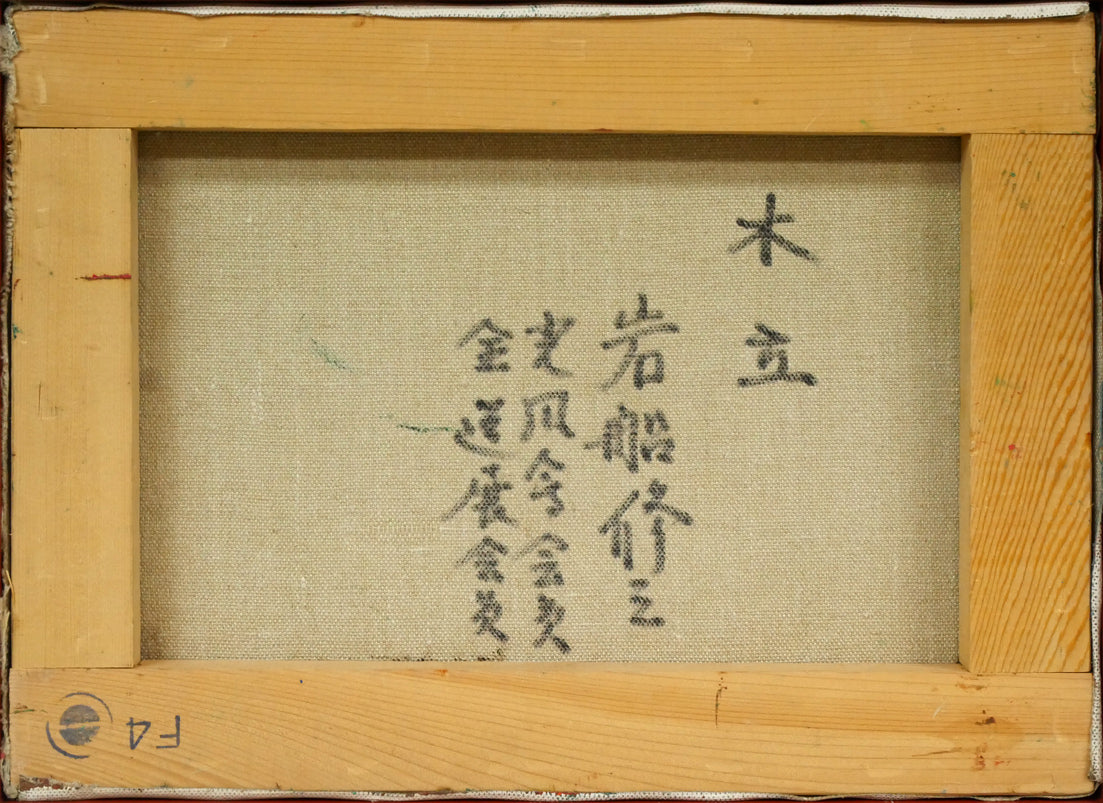 木立
岩船修三
光風会会員
全道展会員
F4